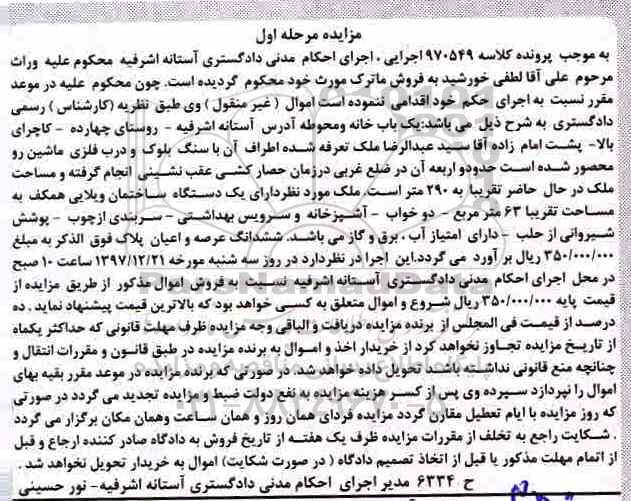 مزایده مرحله اول
به موجب پرونده کلاسه ۹۷۰۵۴۹ اجرایی ، اجرای احکام مدنی دادگستری آستانه اشرفیه محکوم علیه وراث
مرحوم علی آقا لطفی خورشید به فروش ماترک مورث خود محکوم گردیده است. چون محکوم علیه در موعد
مقرر نسبت به اجرای حکم خود اقدامی ننموده است اموال ( غیر منقول ) وی طبق نظریه (کارشناس ) رسمی
دادگستری به شرح ذیل می باشد:یک باب خانه ومحوطه آدرس آستانه اشرفیه - روستای چهارده - کاچرای
بالا- پشت امام زاده آقا سید عبدالرضا ملک تعرفه شده اطراف آن با سنگ بلوک و درب فلزی ماشین رو
محصور شده است حدودو اربعه آن در ضلع غربی درزمان حصار کشی عقب نشینی انجام گرفته و مساحت
ملک در حال حاضر تقریبا به ۲۹۰ متر است. ملک مورد نظردارای یک دستگاه ساختمان ویلایی همکف به
مساحت تقریبا ۶۳ متر مربع - دو خواب - آشپزخانه و سرویس بهداشتی - سربندی ازچوب - پوشش
شیروانی از حلب - دارای امتیاز آب ، برق و گاز می باشد. ششدانگ عرصه و اعیان پلاک فوق الذکر به مبلغ
۳۵۰/۰۰۰/۰۰۰ ریال بر آورد می گردد.این اجرا در نظردارد در روز سه شنبه مورخه ۱۳۹۷/۱۲/۲۱ ساعت ۱۰ صبح
در محل اجرای احکام مدنی دادگستری آستانه اشرفیه نسبت به فروش اموال مذکور از طریق مزایده از
قیمت پایه ۳۵۰/۰۰۰/۰۰۰ ریال شروع و اموال متعلق به کسی خواهد بود که بالاترین قیمت پیشنهاد نماید . ده
درصد از قیمت فی المجلس از برنده مزایده دریافت و الباقی وجه مزایده ظرف مهلت قانونی که حداکثر یکماه
از تاریخ مزایده تجاوز نخواهد کرد از خریدار اخذ و اموال به برنده مزایده در طبق قانون و مقررات انتقال و
چنانچه منع قانونی نداشته باشد تحویل داده خواهد شد. در صورتی که برنده مزایده در موعد مقرر بقیه بهای
اموال را نپردازد سپرده وی پس از کسر هزینه مزایده به نفع دولت ضبط و مزایده تجدید می گردد در صورتی
که روز مزایده با ایام تعطیل مقارن گردد مزایده فردای همان روز و همان ساعت وهمان مکان برگزار می گردد
. شکایت راجع به تخلف از مقررات مزایده ظرف یک هفته از تاریخ فروش به دادگاه صادر کننده ارجاع و قبل
از اتمام مهلت مذکور یا قبل از اتخاذ تصمیم دادگاه ( در صورت شکایت) اموال به خریدار تحویل نخواهد شد .
ح ۶۳۳۴ مدیر اجرای احکام مدنی دادگستری آستانه اشرفیه- نور حسینی